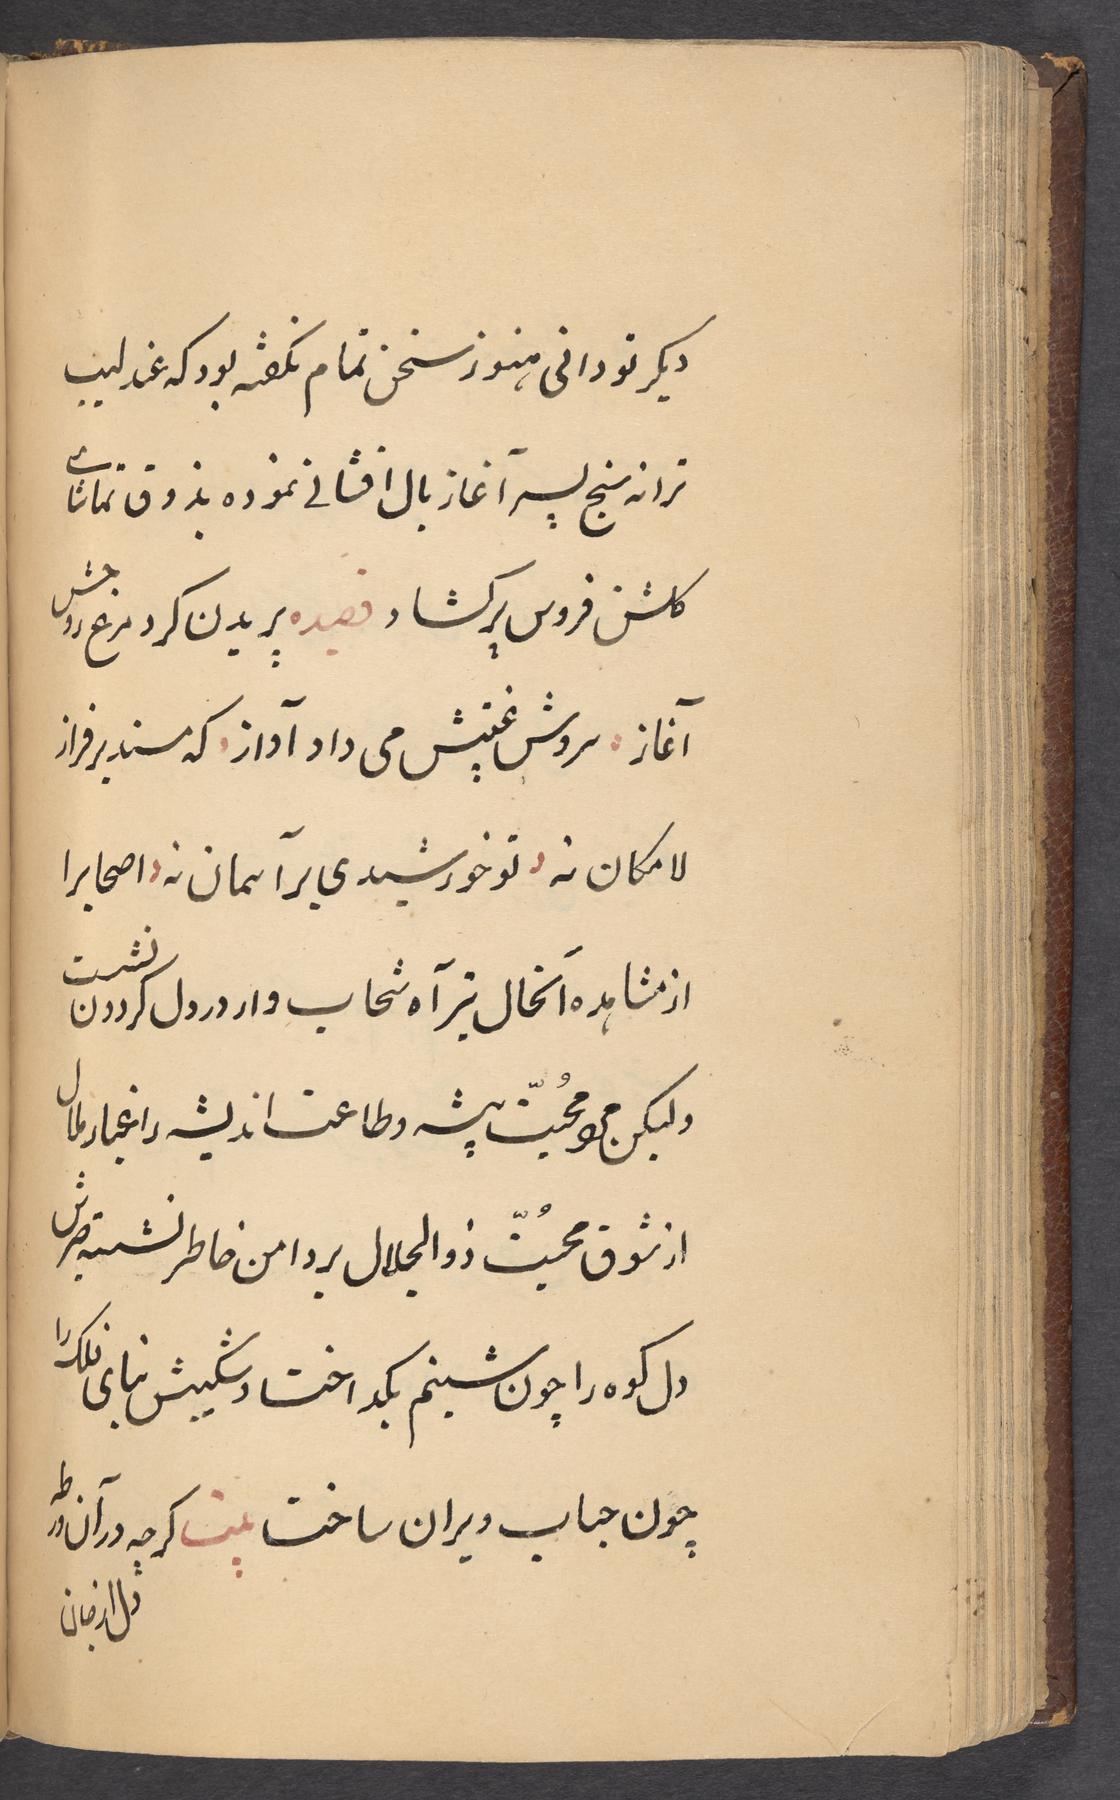 دیکر تو دانی هنوز سخن تمام نکفته بود که عندلیب
ترانه سنج لیسر آغاز بال افشانی نموده بذوق تماشای
کلشن فردوس پر کشاد قصیده پریدن کرد مرغ روحش
آغاز سروش غیبش می داد آواز که مسند بر فراز
لامکان نه تو خورشیدی بر آسمان نه اصحابرا
از مشاهده آنحال تیر آه شحاب وار در دل کردون نشست
ولیکن محو محبّت پیشه و طاعت اندیشه را غبار ملال
از شوق محبّت ذوالجلال بر دامن خاطر نشسته صرصرش
دل کوه را چون شبنم بکداخت و شکیبش بنای فلک را
چون حباب ویران ساخت بیت کرچه در آن ورطه
دل از جان